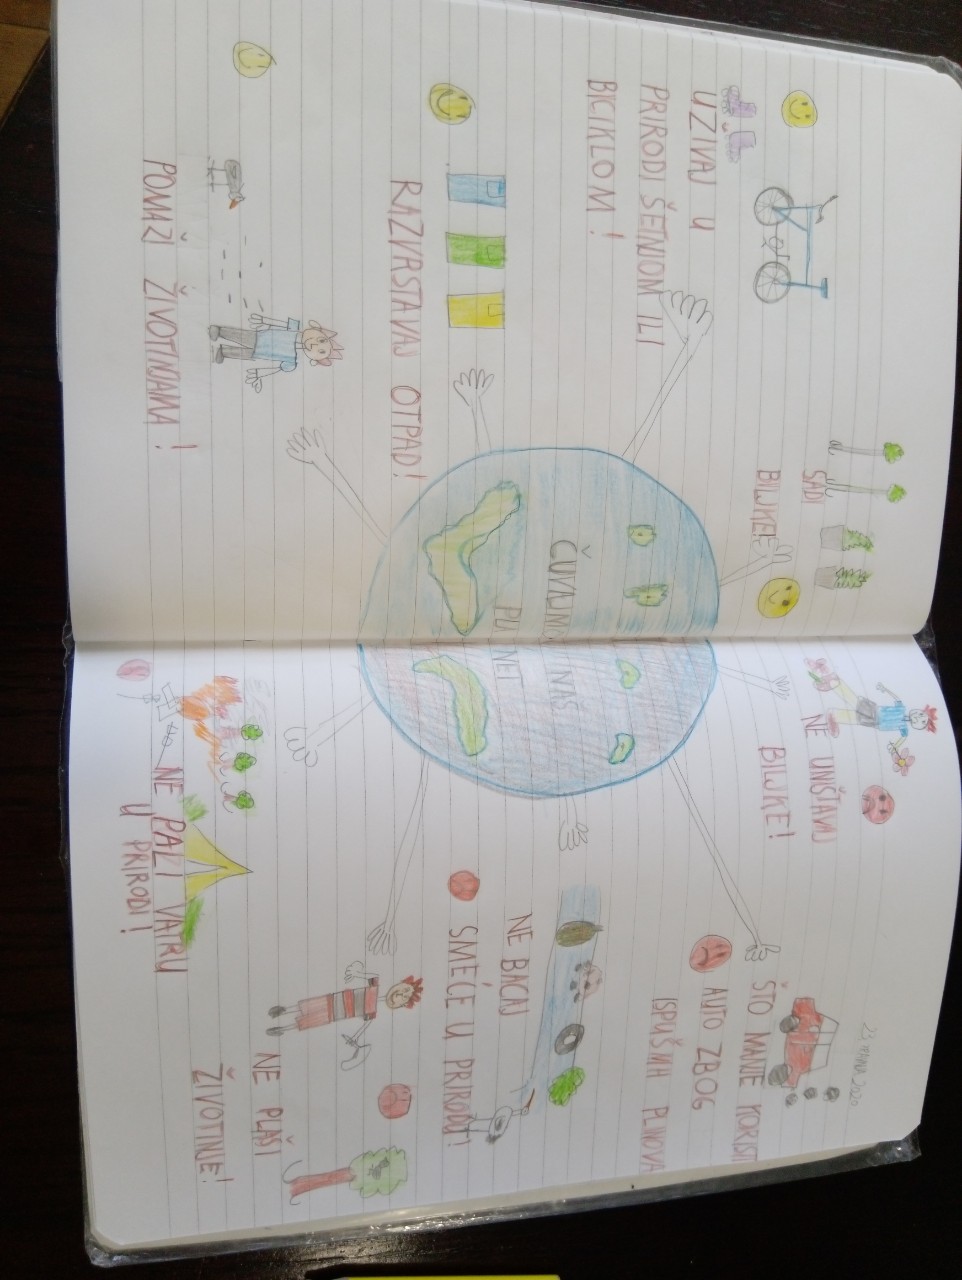 23. TRAVNJA 2020.
UŽIVAJ U
PRIRODI ŠETNJOM ILI
BICIKLOM!
RAZVRSTAVAJ OTPAD!
POMAŽI ŽIVOTINJAMA!
SADI
BILJKE!
ČUVAJMO NAŠ
PLANET
NE UNIŠTAVAJ
BILJKE!
ŠTO MANJE KORISTI
AUTO ZBOG
ISPUŠNIH PLINOVA
NE BACAJ
SMEĆE U PRIRODU!
NE PLAŠI
ŽIVOTINJE!
NE PALI VATRU
U PRIRODI!